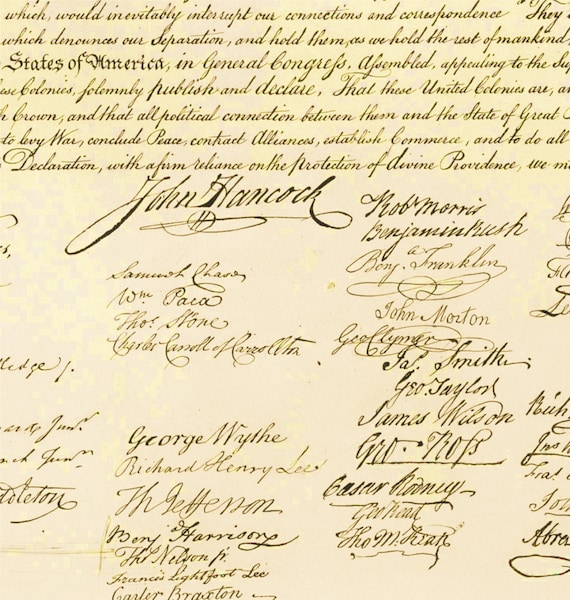 which, would inevitably interrupt our connections and correspondence They
which denounces our Separation, and hold them, as we hold the rest of mankind,
States of America, in General Congress, Assembled, appealing to the Su
hese Colonies, solemnly publish and declare, That these United Colonies are, an
h Crown, and that all political connection between them and the State of Great
to levy War, conclude Peace, contract Alliances, establish Commerce, and to do all
Declaration, with a firm reliance on the protection of divine Providence, we m
John Hancock
Samuel Chase
Wm Paca
Thos. Stone
Charles Carroll of Carrollton
George Wythe
Richard Henry Lee
Th Jefferson
Benj Harrison
Thos Nelson jr
Francis Lightfoot Lee
Carter Braxton
Robt Morris
Benjamin Rush
Benja. Franklin
John Morton
Geo Clymer
Jas. Smith
Geo. Taylor
James Wilson
Geo. Ross
Caesar Rodney
Geo Read
Tho M.Kean
ledge j.
nch Junr.
ddleton
Rich
Fras.
John
Abra